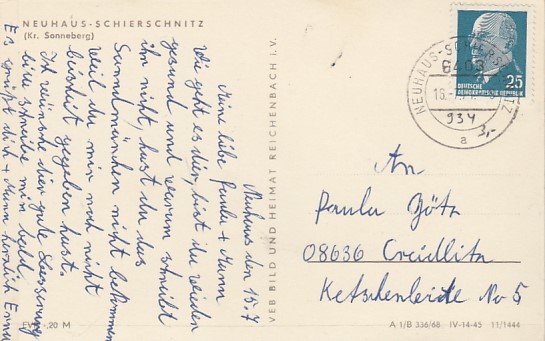 NEUHAUS-SCHIERSCHNITZ
(Kr. Sonneberg)
Neuhaus den 15.7
Meine liebe Paula + Mann
Wie geht es dir, bist du wieder
gesund und warum schreibt
ihr nicht, hast du das
nicht bekommen
weil du mir noch nicht
bescheid gegeben hast.
Ich wünsche dir gute Besserung
bitte schreibe mir bald.
Es grüßt dich + Mann herzlich Erna
VEB BILD UND HEIMAT REICHENBACH I. V.
EVP -,20 M
NEUHAUS-SCHIERSCHNITZ
6403
a
25
DEUTSCHE
DEMOKRATISCHE REPUBLIK
934
3,-
An
Paula Götz
08636 Creidlitz
Ketschenleite No 5
A 1/B 336/68 IV-14-45 11/1444